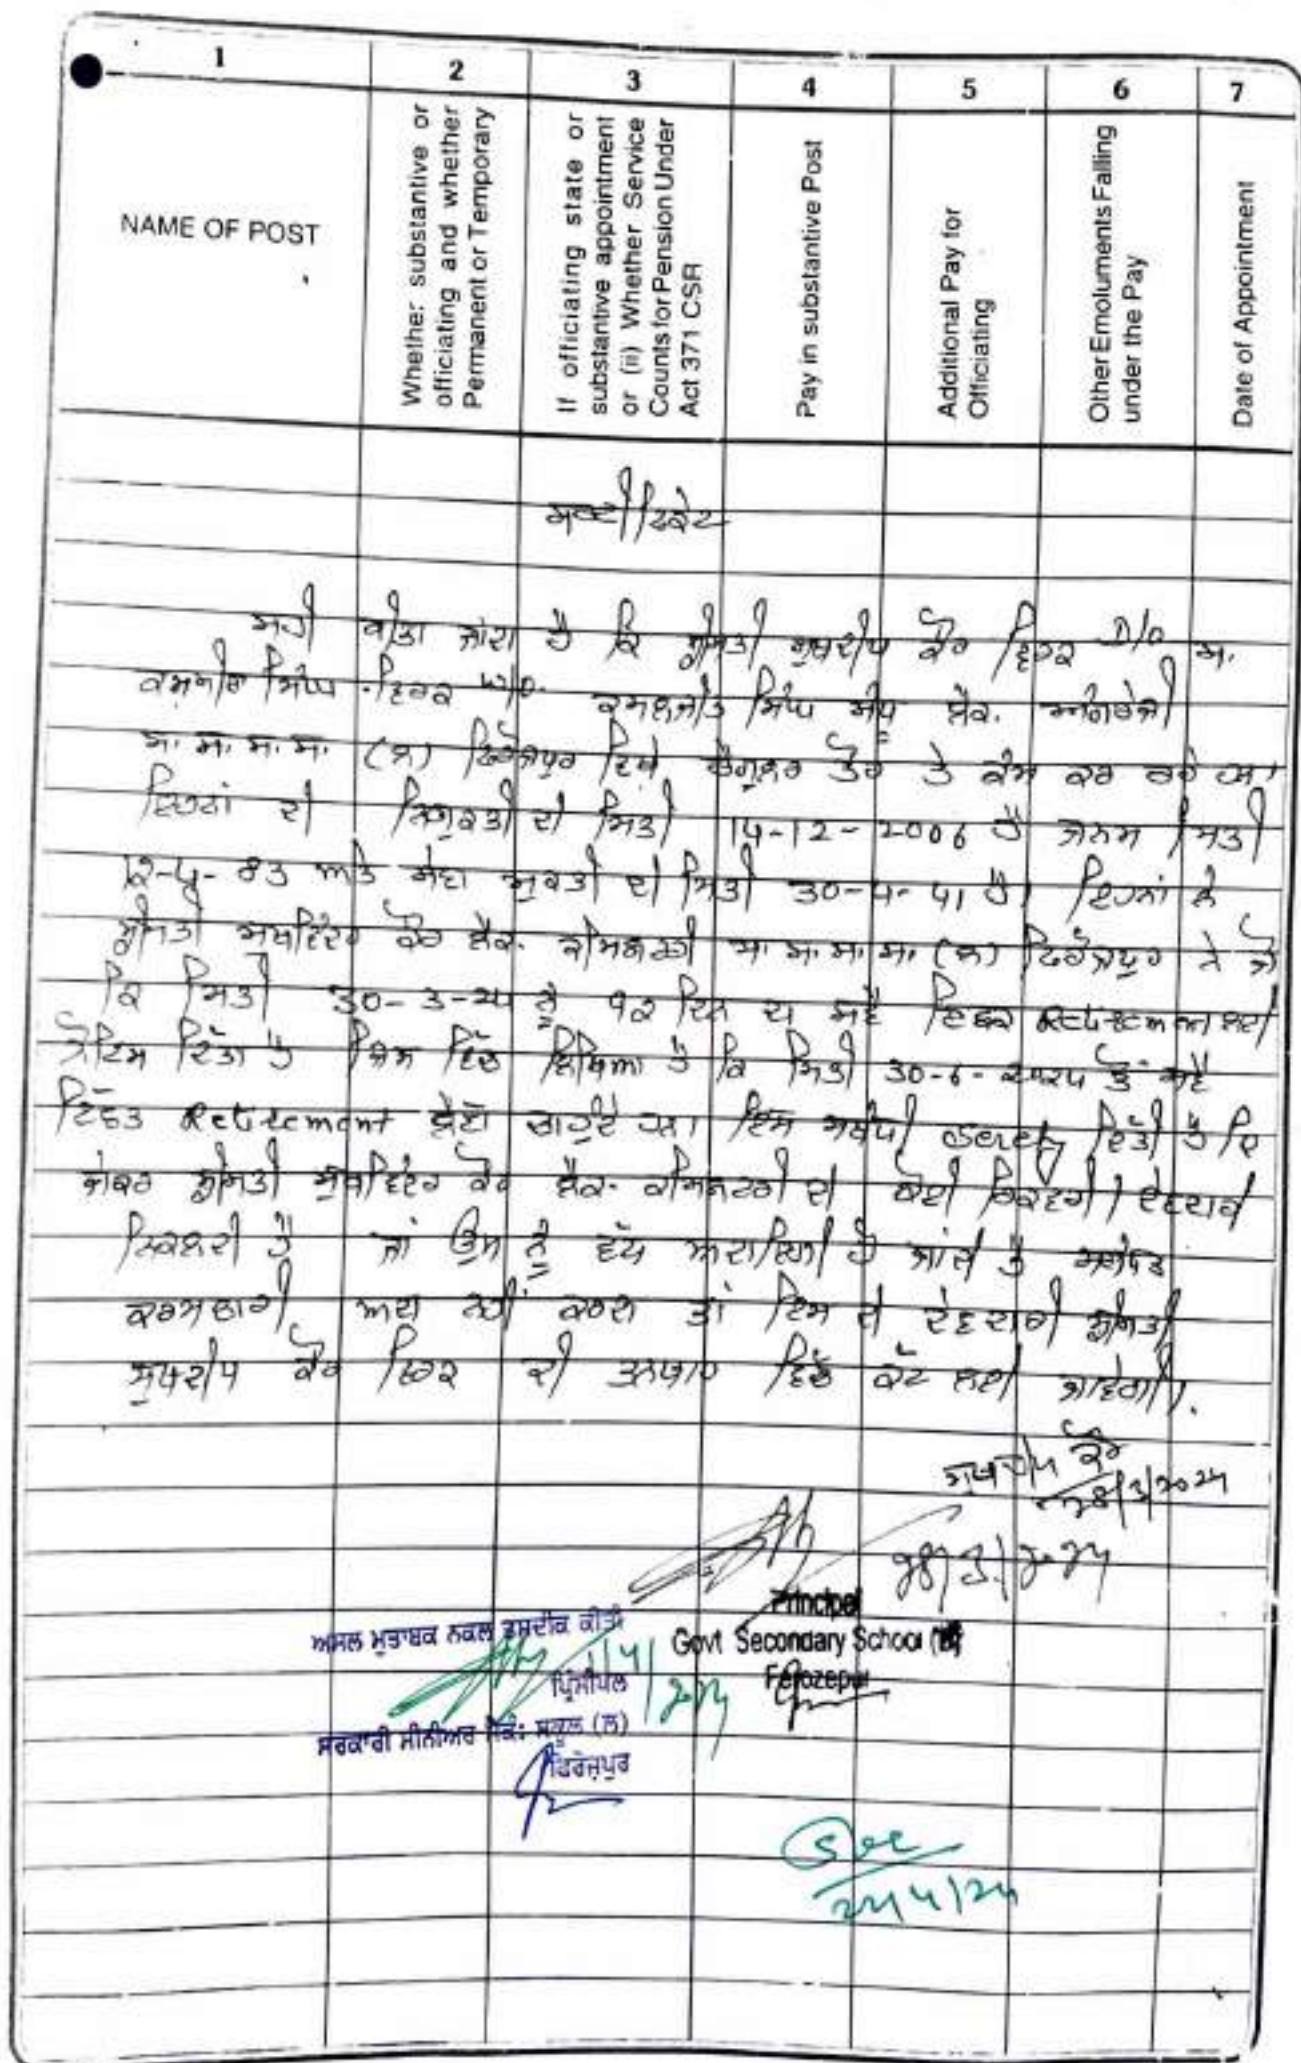 1 2 3 4 5 6 7
NAME OF POST
Whether: substantive or
officiating and whether
Permanent or Temporary
If officiating state or
substantive appointment
or (ii) Whether Service
Counts for Pension Under
Act 371 CSR
Pay in substantive Post
Additional Pay for
Officiating
Other Emoluments Falling
under the Pay
Date of Appointment
ਸਰਟੀਫਿਕੇਟ
ਸਹੀ ਕੀਤਾ ਜਾਂਦਾ ਹੈ ਕਿ ਸ਼੍ਰੀਮਤੀ ਸੁਖਦੀਪ ਕੌਰ ਵਿਰਕ D/O ਸ.
ਕਸ਼ਮੀਰ ਸਿੰਘ ਵਿਰਕ W/O. ਕਮਲਜੀਤ ਸਿੰਘ ਲੈਕ. ਅੰਗਰੇਜ਼ੀ
ਸ. ਸ. ਸ. ਸ. (ਲ) ਫਿਰੋਜ਼ਪੁਰ ਵਿਖੇ ਰੈਗੂਲਰ ਤੌਰ ਤੇ ਕੰਮ ਕਰ ਰਹੇ ਹਨ।
ਇਹਨਾਂ ਦੀ ਨਿਯੁਕਤੀ ਦੀ ਮਿਤੀ 14-12-2006 ਹੈ ਜਨਮ ਮਿਤੀ
ਅਤੇ ਸੇਵਾ ਮੁਕਤੀ ਦੀ ਮਿਤੀ ਹੈ। ਇਹਨਾਂ ਨੇ
ਸ਼੍ਰੀਮਤੀ ਕੌਰ ਲੈਕ. ਕੈਮਿਸਟਰੀ ਸ. ਸ. ਸ. ਸ. (ਲ) ਫਿਰੋਜ਼ਪੁਰ ਨੇ ਜੋ
ਕਿ ਮਿਤੀ ਨੂੰ ਦਿਨ ਦਾ ਸਵੈ ਇਛਕ Retirement ਲਈ
ਨੋਟਿਸ ਦਿੱਤਾ ਹੈ ਜਿਸ ਵਿੱਚ ਲਿਖਿਆ ਹੈ ਕਿ ਮਿਤੀ ਤੋਂ ਸਵੈ
ਇੱਛਤ Retirement ਲੈਣਾ ਚਾਹੁੰਦੇ ਹਨ। ਇਸ ਸਬੰਧੀ ਦਿੱਤੀ ਹੈ ਕਿ
ਜੇਕਰ ਸ਼੍ਰੀਮਤੀ ਸੁਖਵਿੰਦਰ ਕੌਰ ਲੈਕ. ਕੈਮਿਸਟਰੀ ਦੀ ਕੋਈ ਰਿਕਵਰੀ/ਦੇਣਦਾਰੀ
ਨਿਕਲਦੀ ਹੈ ਜਾਂ ਉਸ ਨੂੰ ਵੱਧ ਅਦਾਇਗੀ ਹੋ ਜਾਂਦੀ ਹੈ ਸਬੰਧਤ
ਕਰਮਚਾਰੀ ਅਦਾ ਨਹੀਂ ਕਰਦਾ ਤਾਂ ਇਸ ਦੀ ਦੇਣਦਾਰੀ ਸ਼੍ਰੀਮਤੀ
ਸੁਖਦੀਪ ਕੌਰ ਵਿਰਕ ਦੀ ਤਨਖਾਹ ਵਿੱਚੋਂ ਕੱਟ ਲਈ ਜਾਵੇਗੀ।
ਸੁਖਦੀਪ ਕੌਰ
28/3/2025
Principal
Govt Secondary School
Ferozepur
ਅਸਲ ਮੁਤਾਬਕ ਨਕਲ ਤਸਦੀਕ ਕੀਤੀ
ਪ੍ਰਿੰਸੀਪਲ
ਸਰਕਾਰੀ ਸੀਨੀਅਰ ਸੈਕੰ: ਸਕੂਲ (ਲ)
ਫਿਰੋਜ਼ਪੁਰ